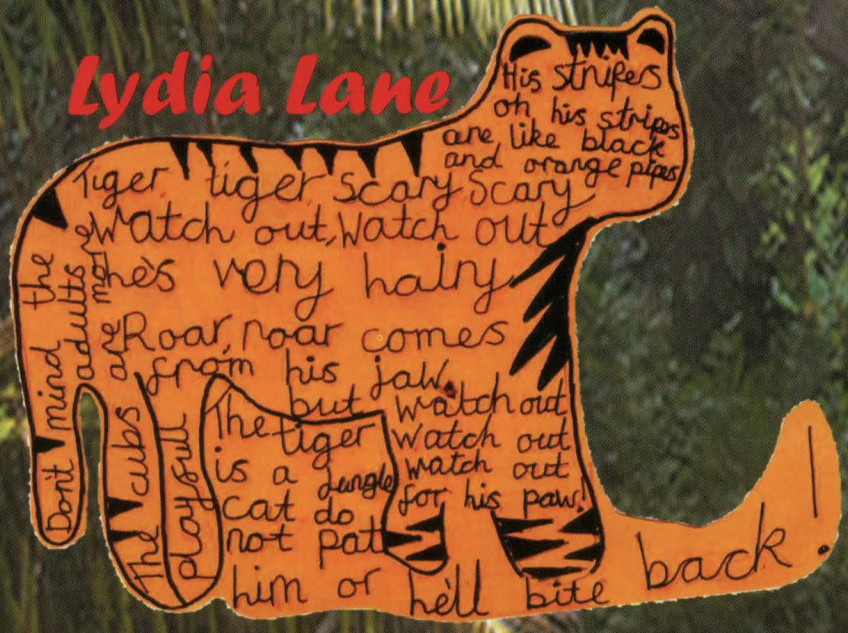 Lydia Lane
His stripers
on his stripes
are like black
and orange pipes
Tiger tiger Scary Scary
Watch out, Watch out
he's very hairy
Roar, roar comes
from his jaw
but watch out
watch out
watch out
for his paw!
The tiger
is a
Jungle
cat do
not pat
him or he'll bite back!
Don't mind the
adults
The cubs are more
playfull